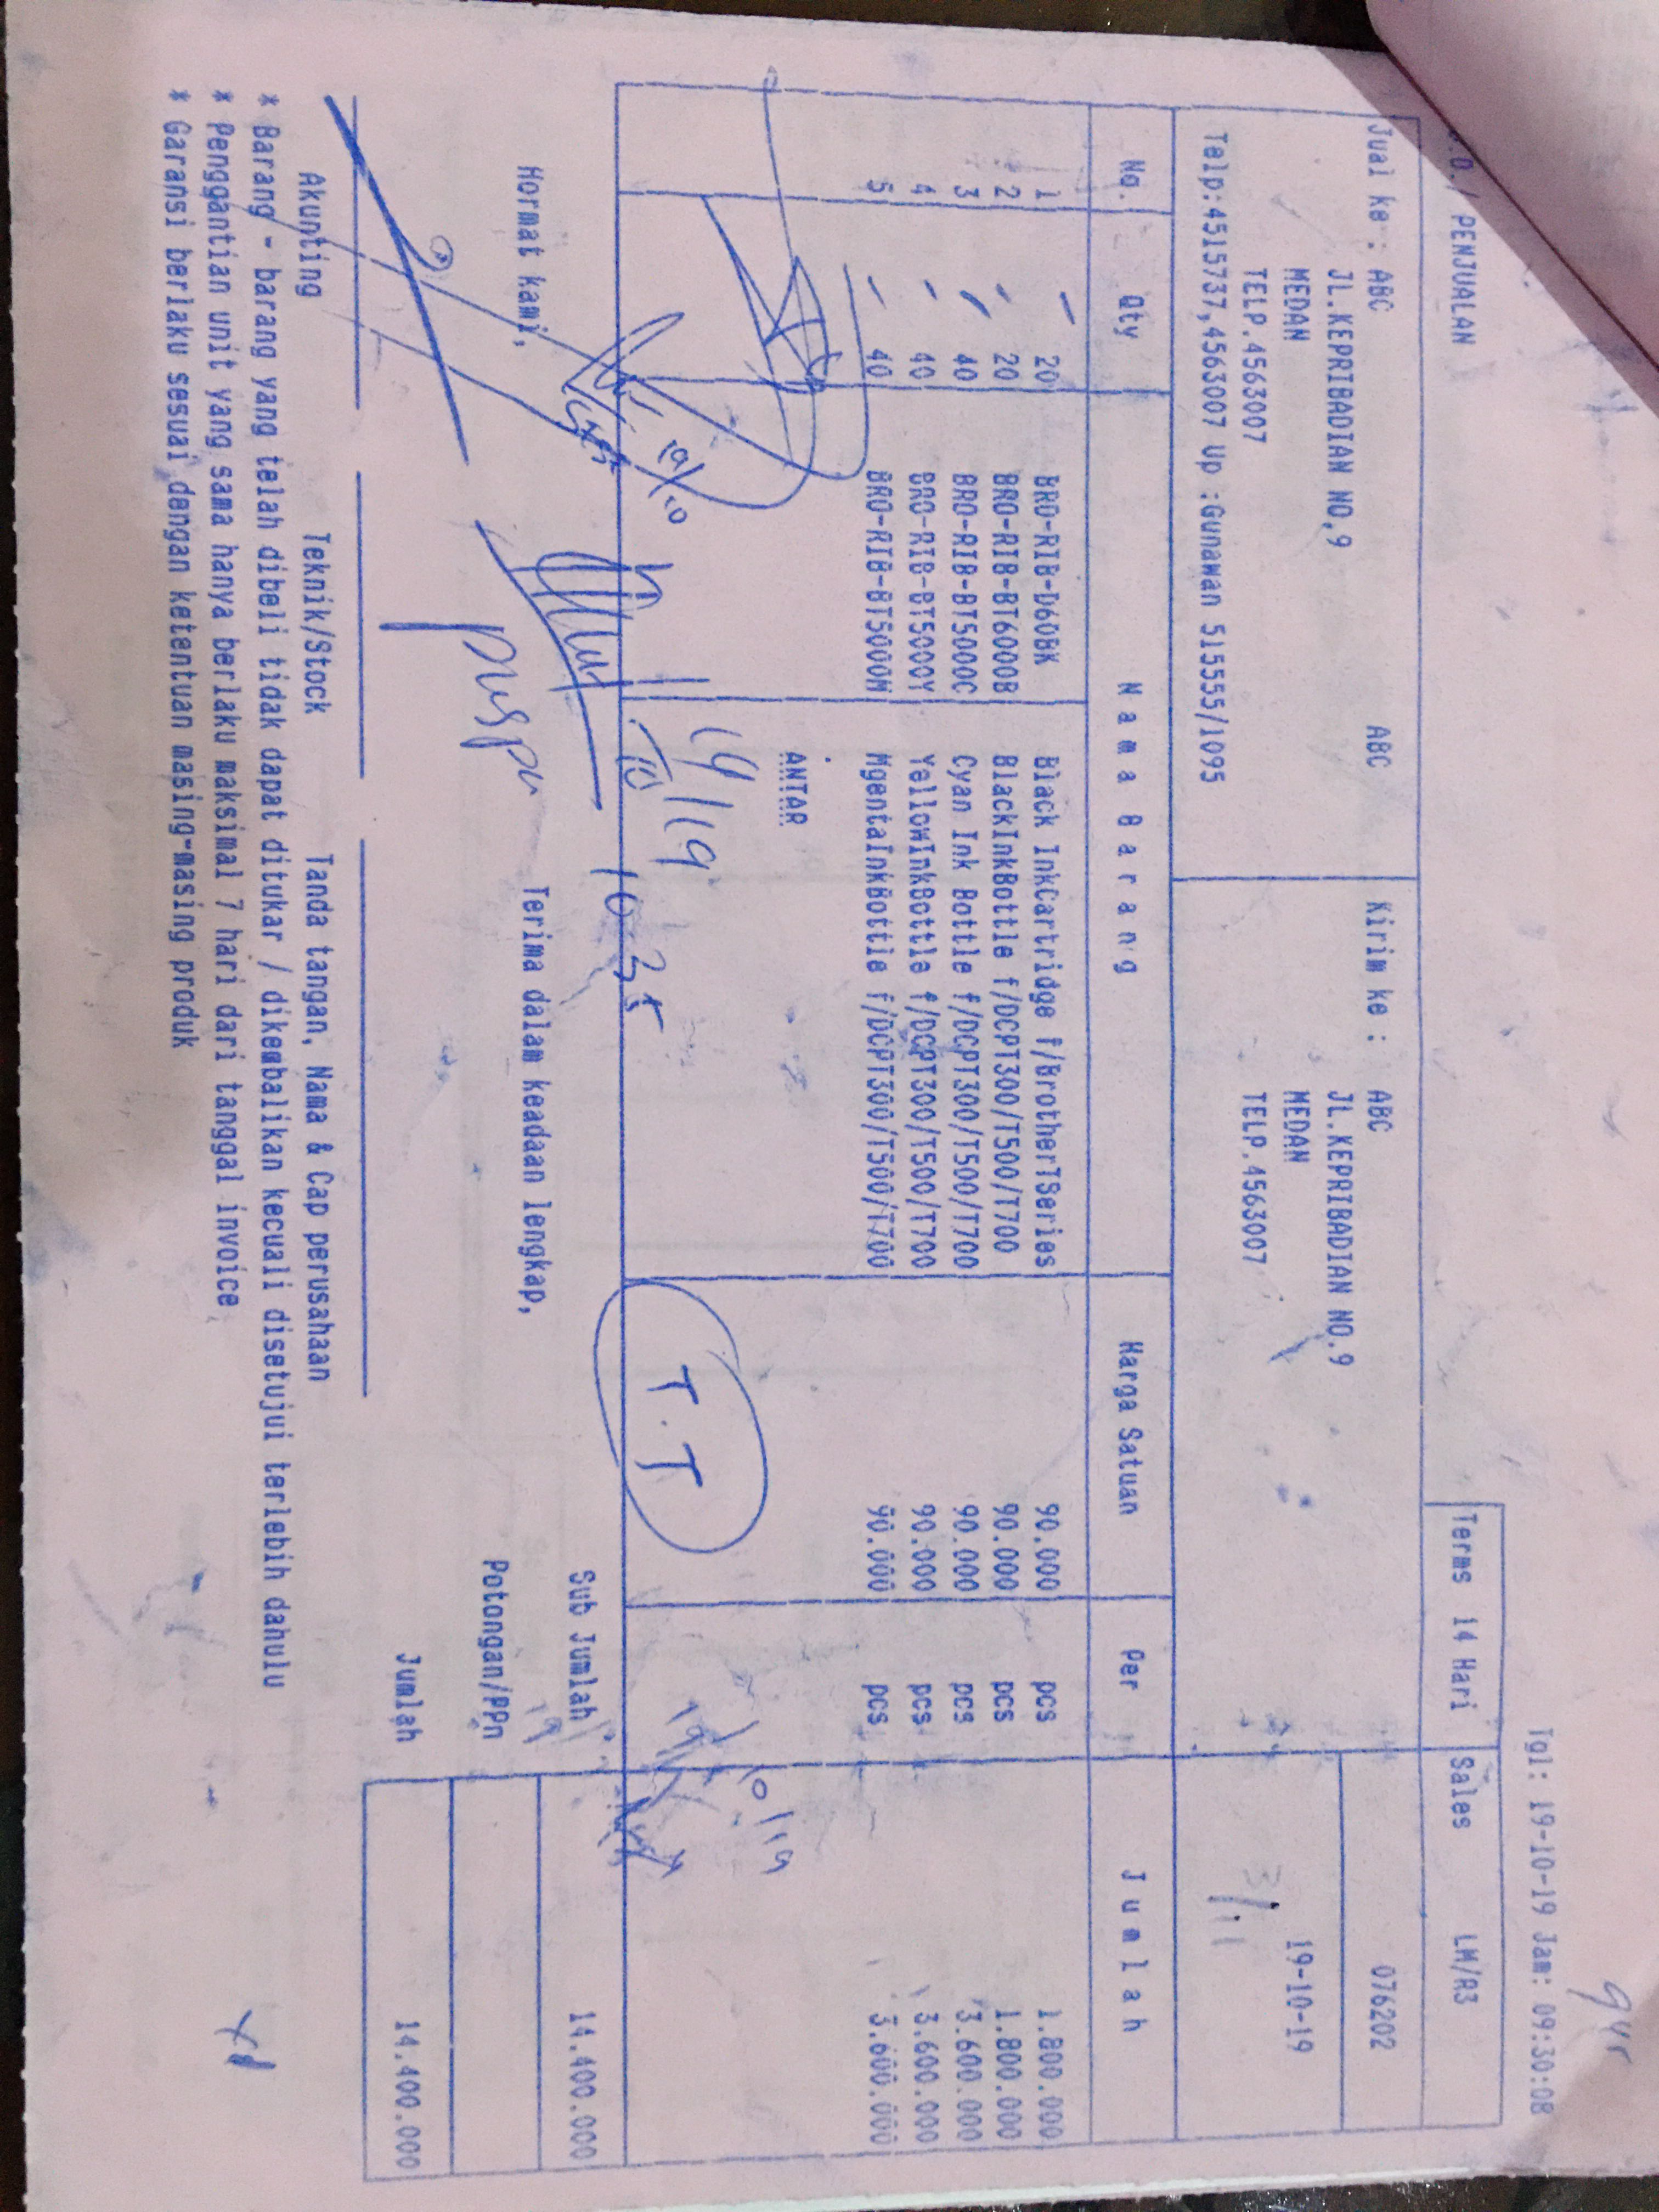 Tgl: 19-10-19 Jam: 09:30:08
PENJUALAN
Terms 14 Hari Sales LM/R3
Jual ke : ABC ABC Kirim ke : ABC 076202
JL.KEPRIBADIAN NO.9 JL.KEPRIBADIAN NO.9
MEDAN MEDAN 19-10-19
TELP.4563007 TELP.4563007
Telp:4515737,4563007 Up :Gunawan 51555/1095
3/11
No. Qty Nama Barang Harga Satuan Per Jumlah
1 20 BRO-RIB-D60BK Black InkCartridge f/BrotherTSeries 90.000 pcs 1.800.000
2 20 BRO-RIB-BT6000B BlackInkBottle f/DCPT300/T500/T700 90.000 pcs 1.800.000
3 40 BRO-RIB-BT5000C Cyan Ink Bottle f/DCPT300/T500/T700 90.000 pcs 3.600.000
4 40 BRO-RIB-BT5000Y YellowInkBottle f/DCPT300/T500/T700 90.000 pcs 3.600.000
5 40 BRO-RIB-BT5000M MgentaInkBottle f/DCPT300/T500/T700 90.000 pcs 3.600.000
ANTAR
19/10
T.T
19/10/19
10 35
Sub Jumlah 14.400.000
Hormat kami, Terima dalam keadaan lengkap,
Potongan/PPn
puspa
Jumlah 14.400.000
Akunting Teknik/Stock Tanda tangan, Nama & Cap perusahaan
* Barang - barang yang telah dibeli tidak dapat ditukar / dikembalikan kecuali disetujui terlebih dahulu
* Penggantian unit yang sama hanya berlaku maksimal 7 hari dari tanggal invoice
* Garansi berlaku sesuai dengan ketentuan masing-masing produk